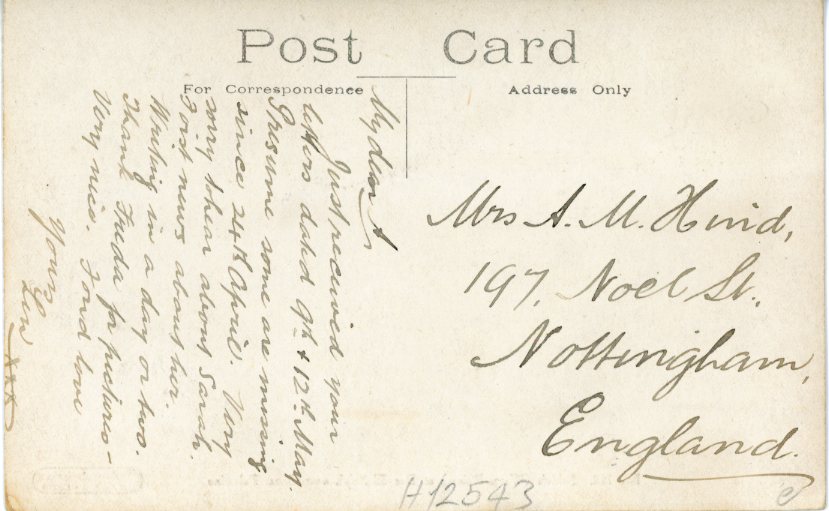 Post Card
For Correspondence
Address Only
My dear A
Just received your
letters dated 9th & 12th May.
Presume some are missing
since 24th April. Very
sorry to hear about Sarah.
First news about her.
Writing in a day or two.
Thank Freda for pictures –
Very nice. Fond love
Yours
Len xxx
Mrs A. M. Hind,
197, Noel St.
Nottingham,
England.
H12543
e